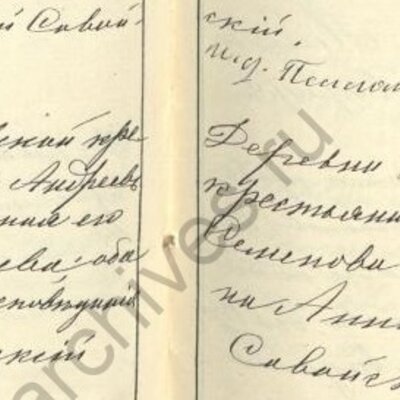 й Савой-
ской кре
Андреевъ
ная его
ева; оба
исповѣданія
скій
скій,
И.д. Псалом
Деревни
крестьянин
Семенова
на Анн
Савойс
archives.ru